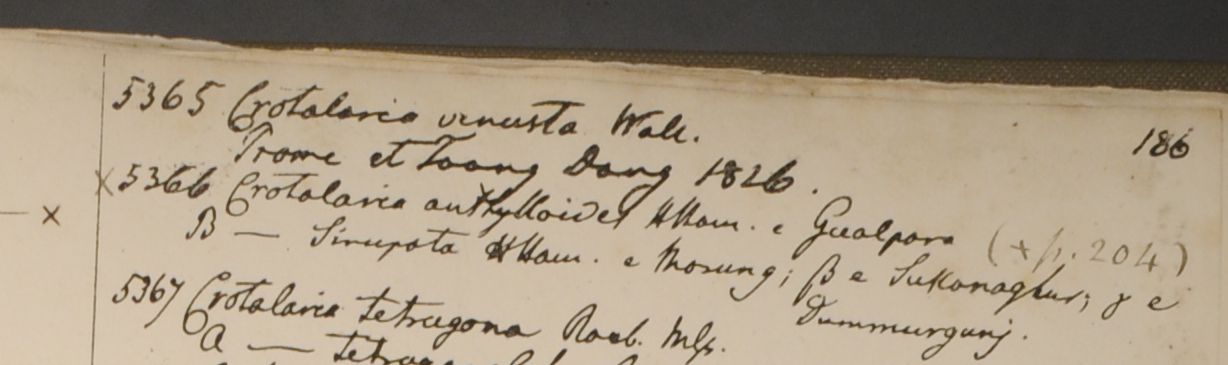 186
5365 Crotalaria venusta Wall.
Prome et Taong Dong 1826.
× 5366 Crotalaria anthylloides HHam. e Gualpara (+ p. 204)
B — Sirupota HHam. e Morung; β e Sukanaghur; γ e
Dummurgunj.
5367 Crotalaria tetragona Roxb. Mss.
a —
×